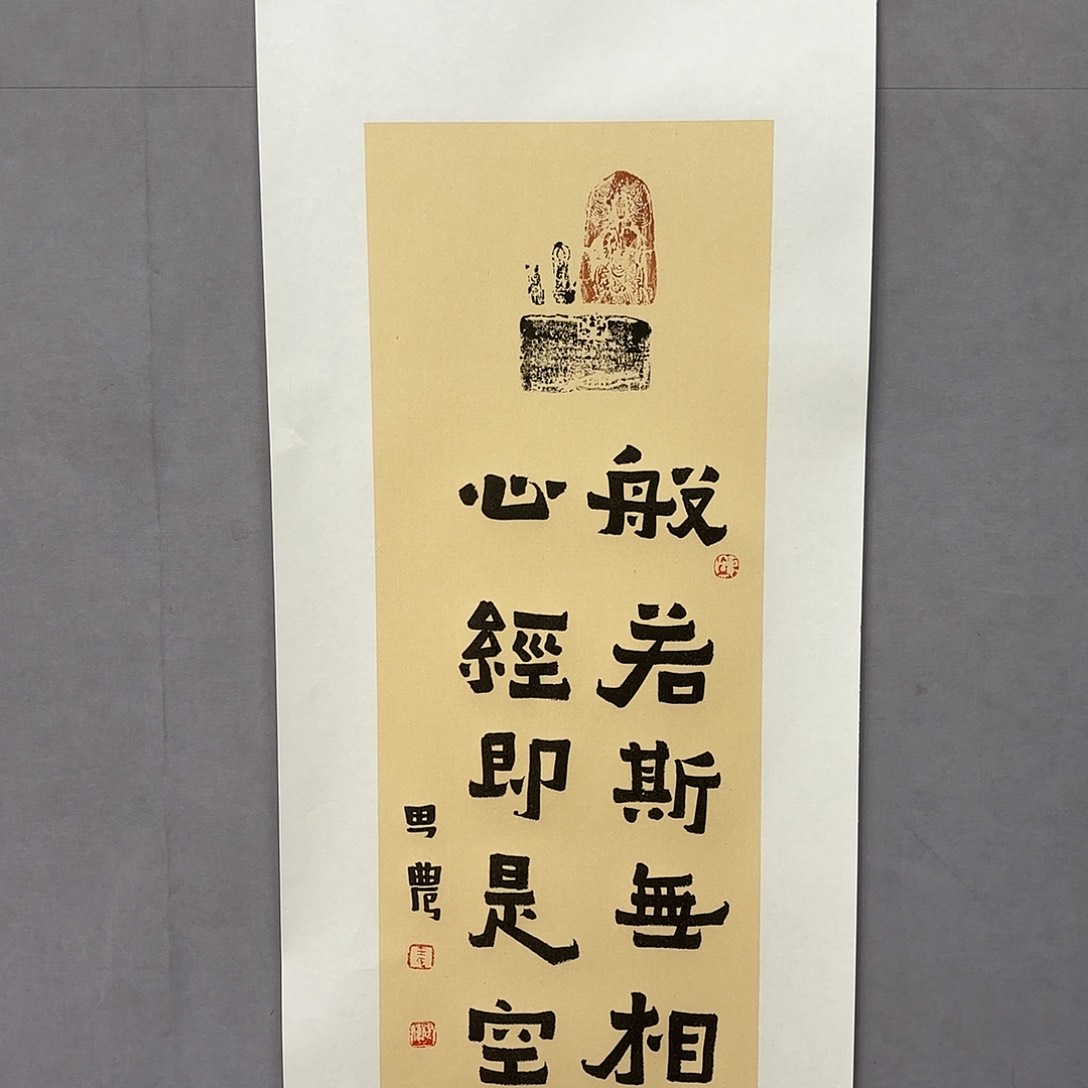 般若斯無相
心經即是空
男農